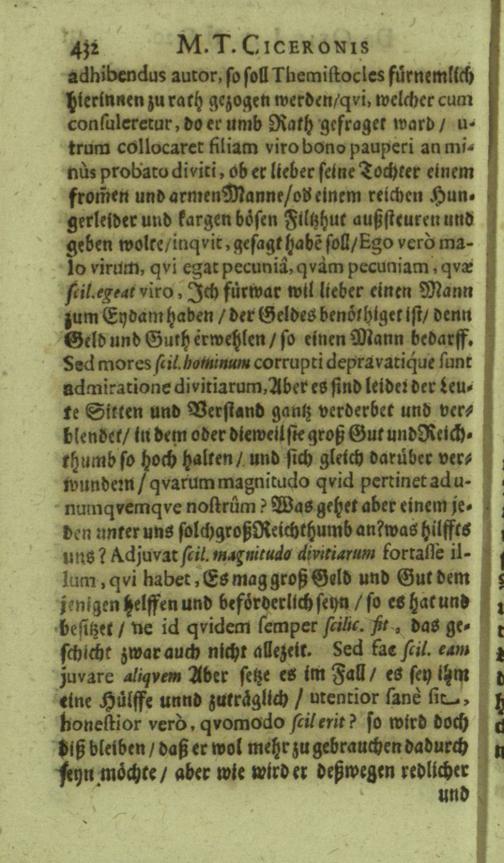 432 M. T. CICERONIS
adhibendus autor, so soll Themistocles fürnemlich
hierinnen zu rath gezogen werden/qvi, welcher cum
consuleretur, do er umb Rath gefraget ward / u-
trum collocaret filiam viro bono pauperi an mi-
nùs probato diviti, ob er lieber seine Tochter einem
from̃en und armen Manne/od einem reichen Hun-
gerleider und kargen bösen Filtzhut außsteuren und
geben wolte/inqvit, gesagt habẽ soll/Ego verò ma-
lo virum, qvi egat pecuniâ, qvàm pecuniam, qvæ
scil. egeat viro, Ich fürwar wil lieber einen Mann
zum Eydam haben / der Geldes benöthiget ist/ denn
Geld und Guth erwehlen / so einen Mann bedarff.
Sed mores scil. hominum corrupti depravatiqve sunt
admiratione divitiarum, Aber es sind leider der Leu-
te Sitten und Verstand gantz verderbet und ver-
blendet/ in dem oder dieweil sie groß Gut und Reich-
thumb so hoch halten / und sich gleich darüber ver-
wundern / qvarum magnitudo qvid pertinet ad u-
numqvemqve nostrûm? Was gehet aber einem je-
den unter uns solch groß Reichthumb an? was hilffts
uns? Adjuvat scil. magnitudo divitiarum fortasse il-
lum, qvi habet, Es mag groß Geld und Gut dem
jenigen helffen und beförderlich seyn / so es hat und
besitzet / ne id qvidem semper scilic. fit, das ge-
schicht zwar auch nicht allezeit. Sed fac scil. eam
juvare aliqvem Aber setze es im Fall / es sey ihm
eine Hülffe unnd zuträglich / utentior sanè sit,
honestior verò, qvomodo scil erit? so wird doch
diß bleiben / daß er wol mehr zu gebrauchen dadurch
seyn möchte / aber wie wird er deßwegen redlicher
und